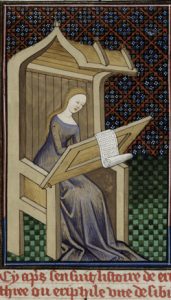 Cy apres sensuit listoire de eri
three ou eriphile vne de sibi